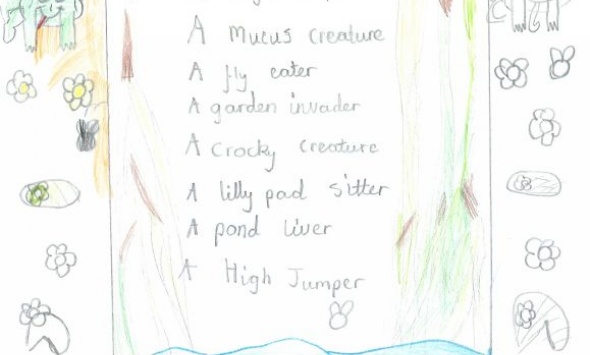 A Mucus creature
A fly eater
A garden invader
A crocky creature
A lilly pad sitter
A pond liver
A High Jumper